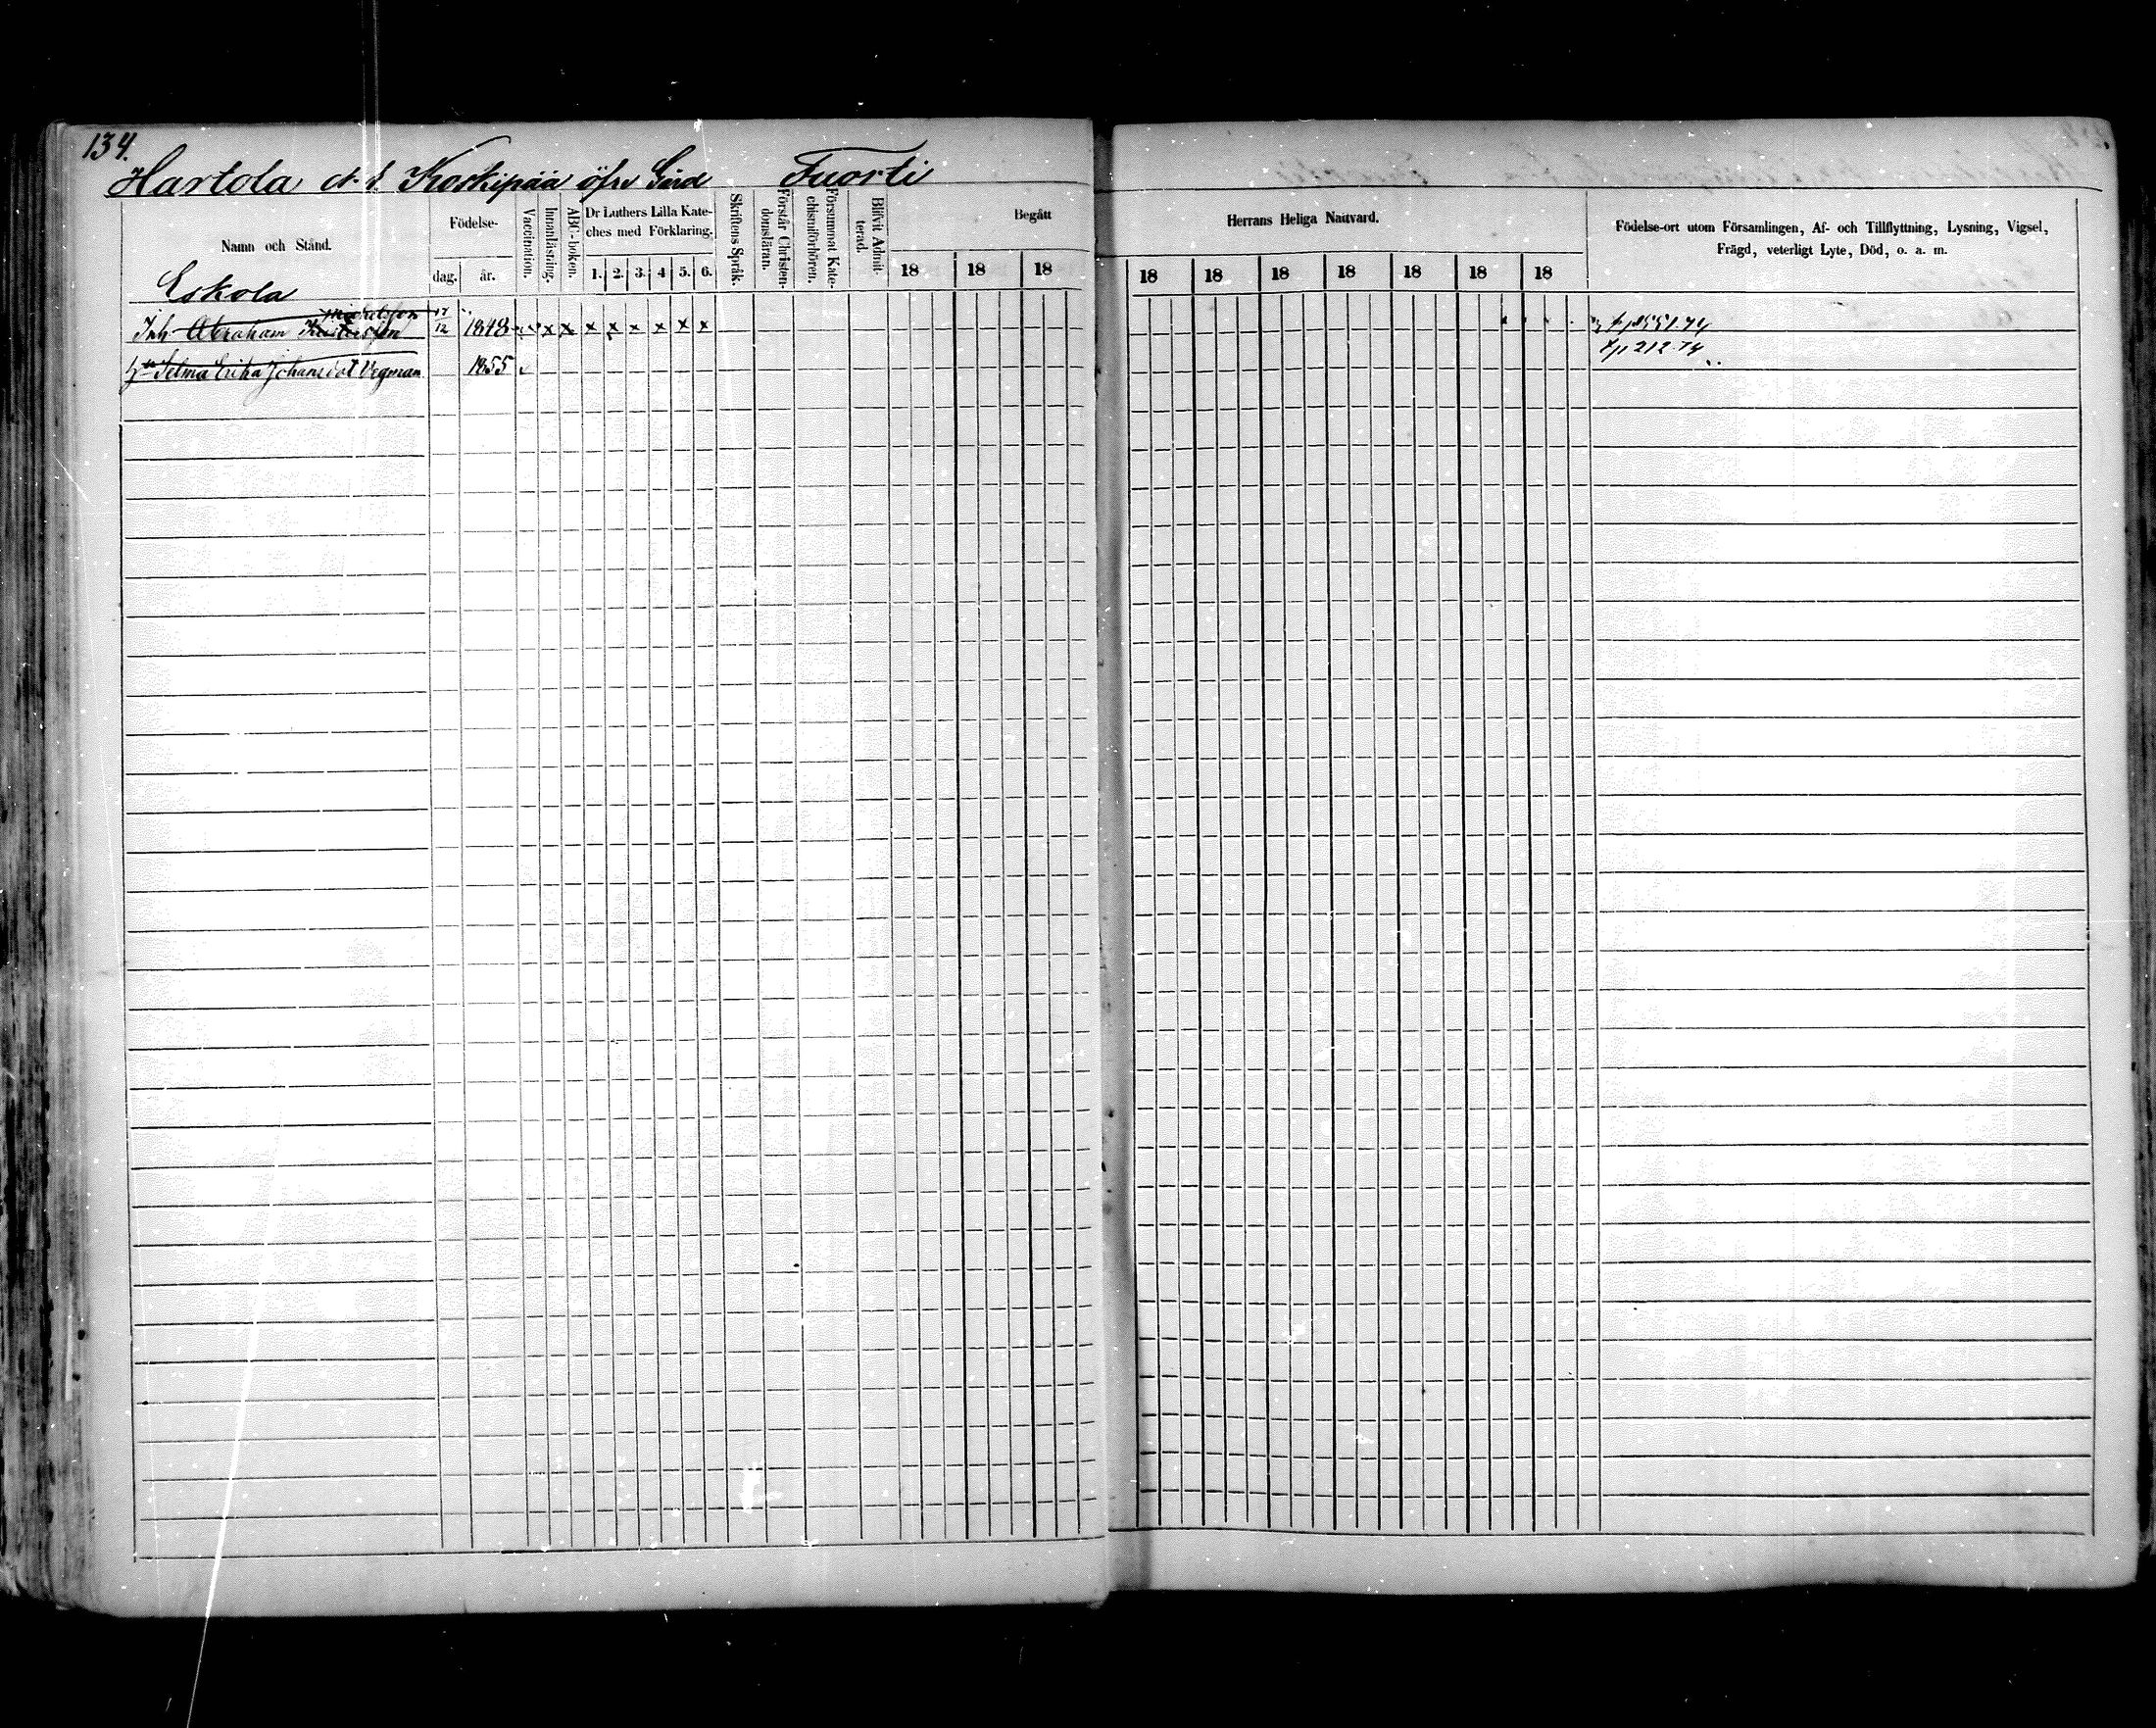 134.
Hartola Koskipää öfre Gård Tuorti
Namn och Stånd.
Födelse-
dag. år.
Vaccination.
Innanläsning.
ABC-boken.
Dr Luthers Lilla Kate-
ches med Förklaring.
1. 2. 3. 4 5. 6.
Skriftens Språk.
Förstår Christen-
domsläran.
Försummat Kate-
chismiförhören.
Blifvit Admit-
terad.
Begått
18 18 18
Herrans Heliga Nattvard.
18 18 18 18 18 18 18
Födelse-ort utom Församlingen, Af- och Tillflyttning, Lysning, Vigsel,
Frägd, veterligt Lyte, Död, o. a. m.
Eskola
Michelsson
Inh Abraham 17/12 1848 x x x x x x x x
Selma Erika Johansdot Vegman 1855
212.74